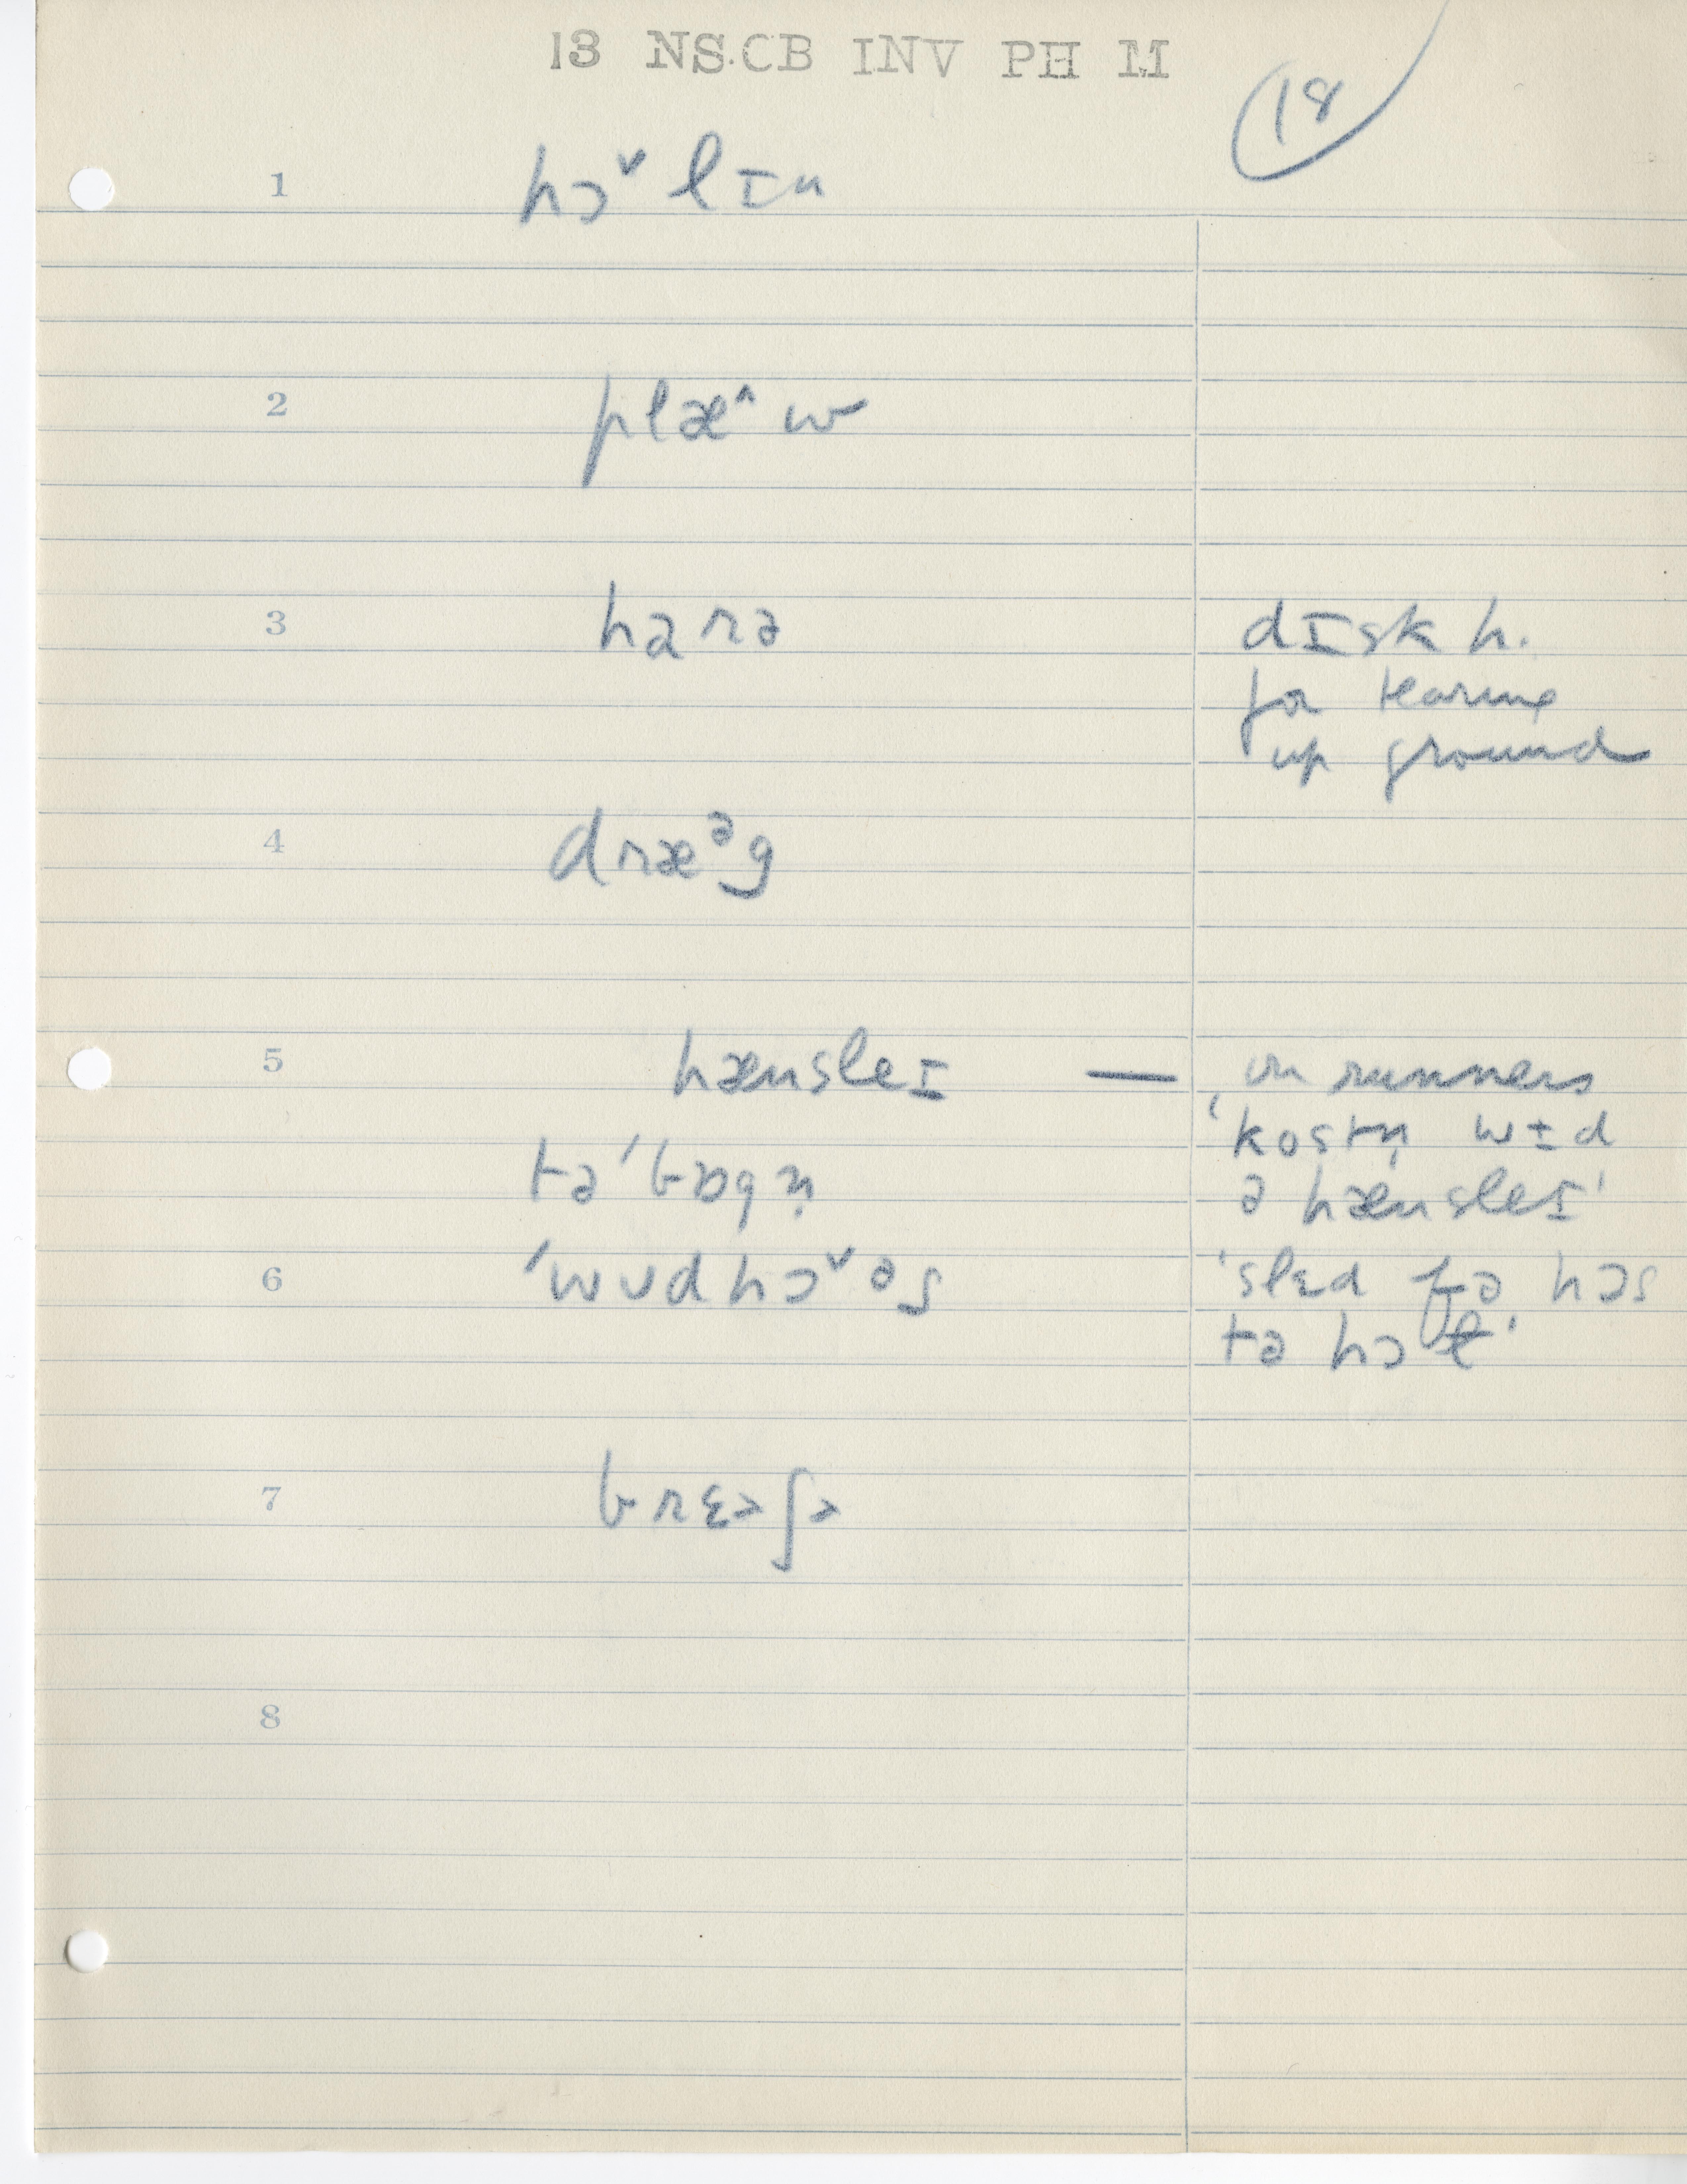 13 NS.CB INV PH M
18
1 hɔˇlɪn
2 plæ^w
3 harə dɪsk h.
for tearing
up ground
4 dræᵊg
5 hænsleɪ — on runners
tə'bɒgn̩ 'kostn̩ wɪd
ə hænsleɪ'
6 'wʊdhɔˇəs 'slɛd fə hɔs
tə hɔɫ'
7 brɛəʃə
8